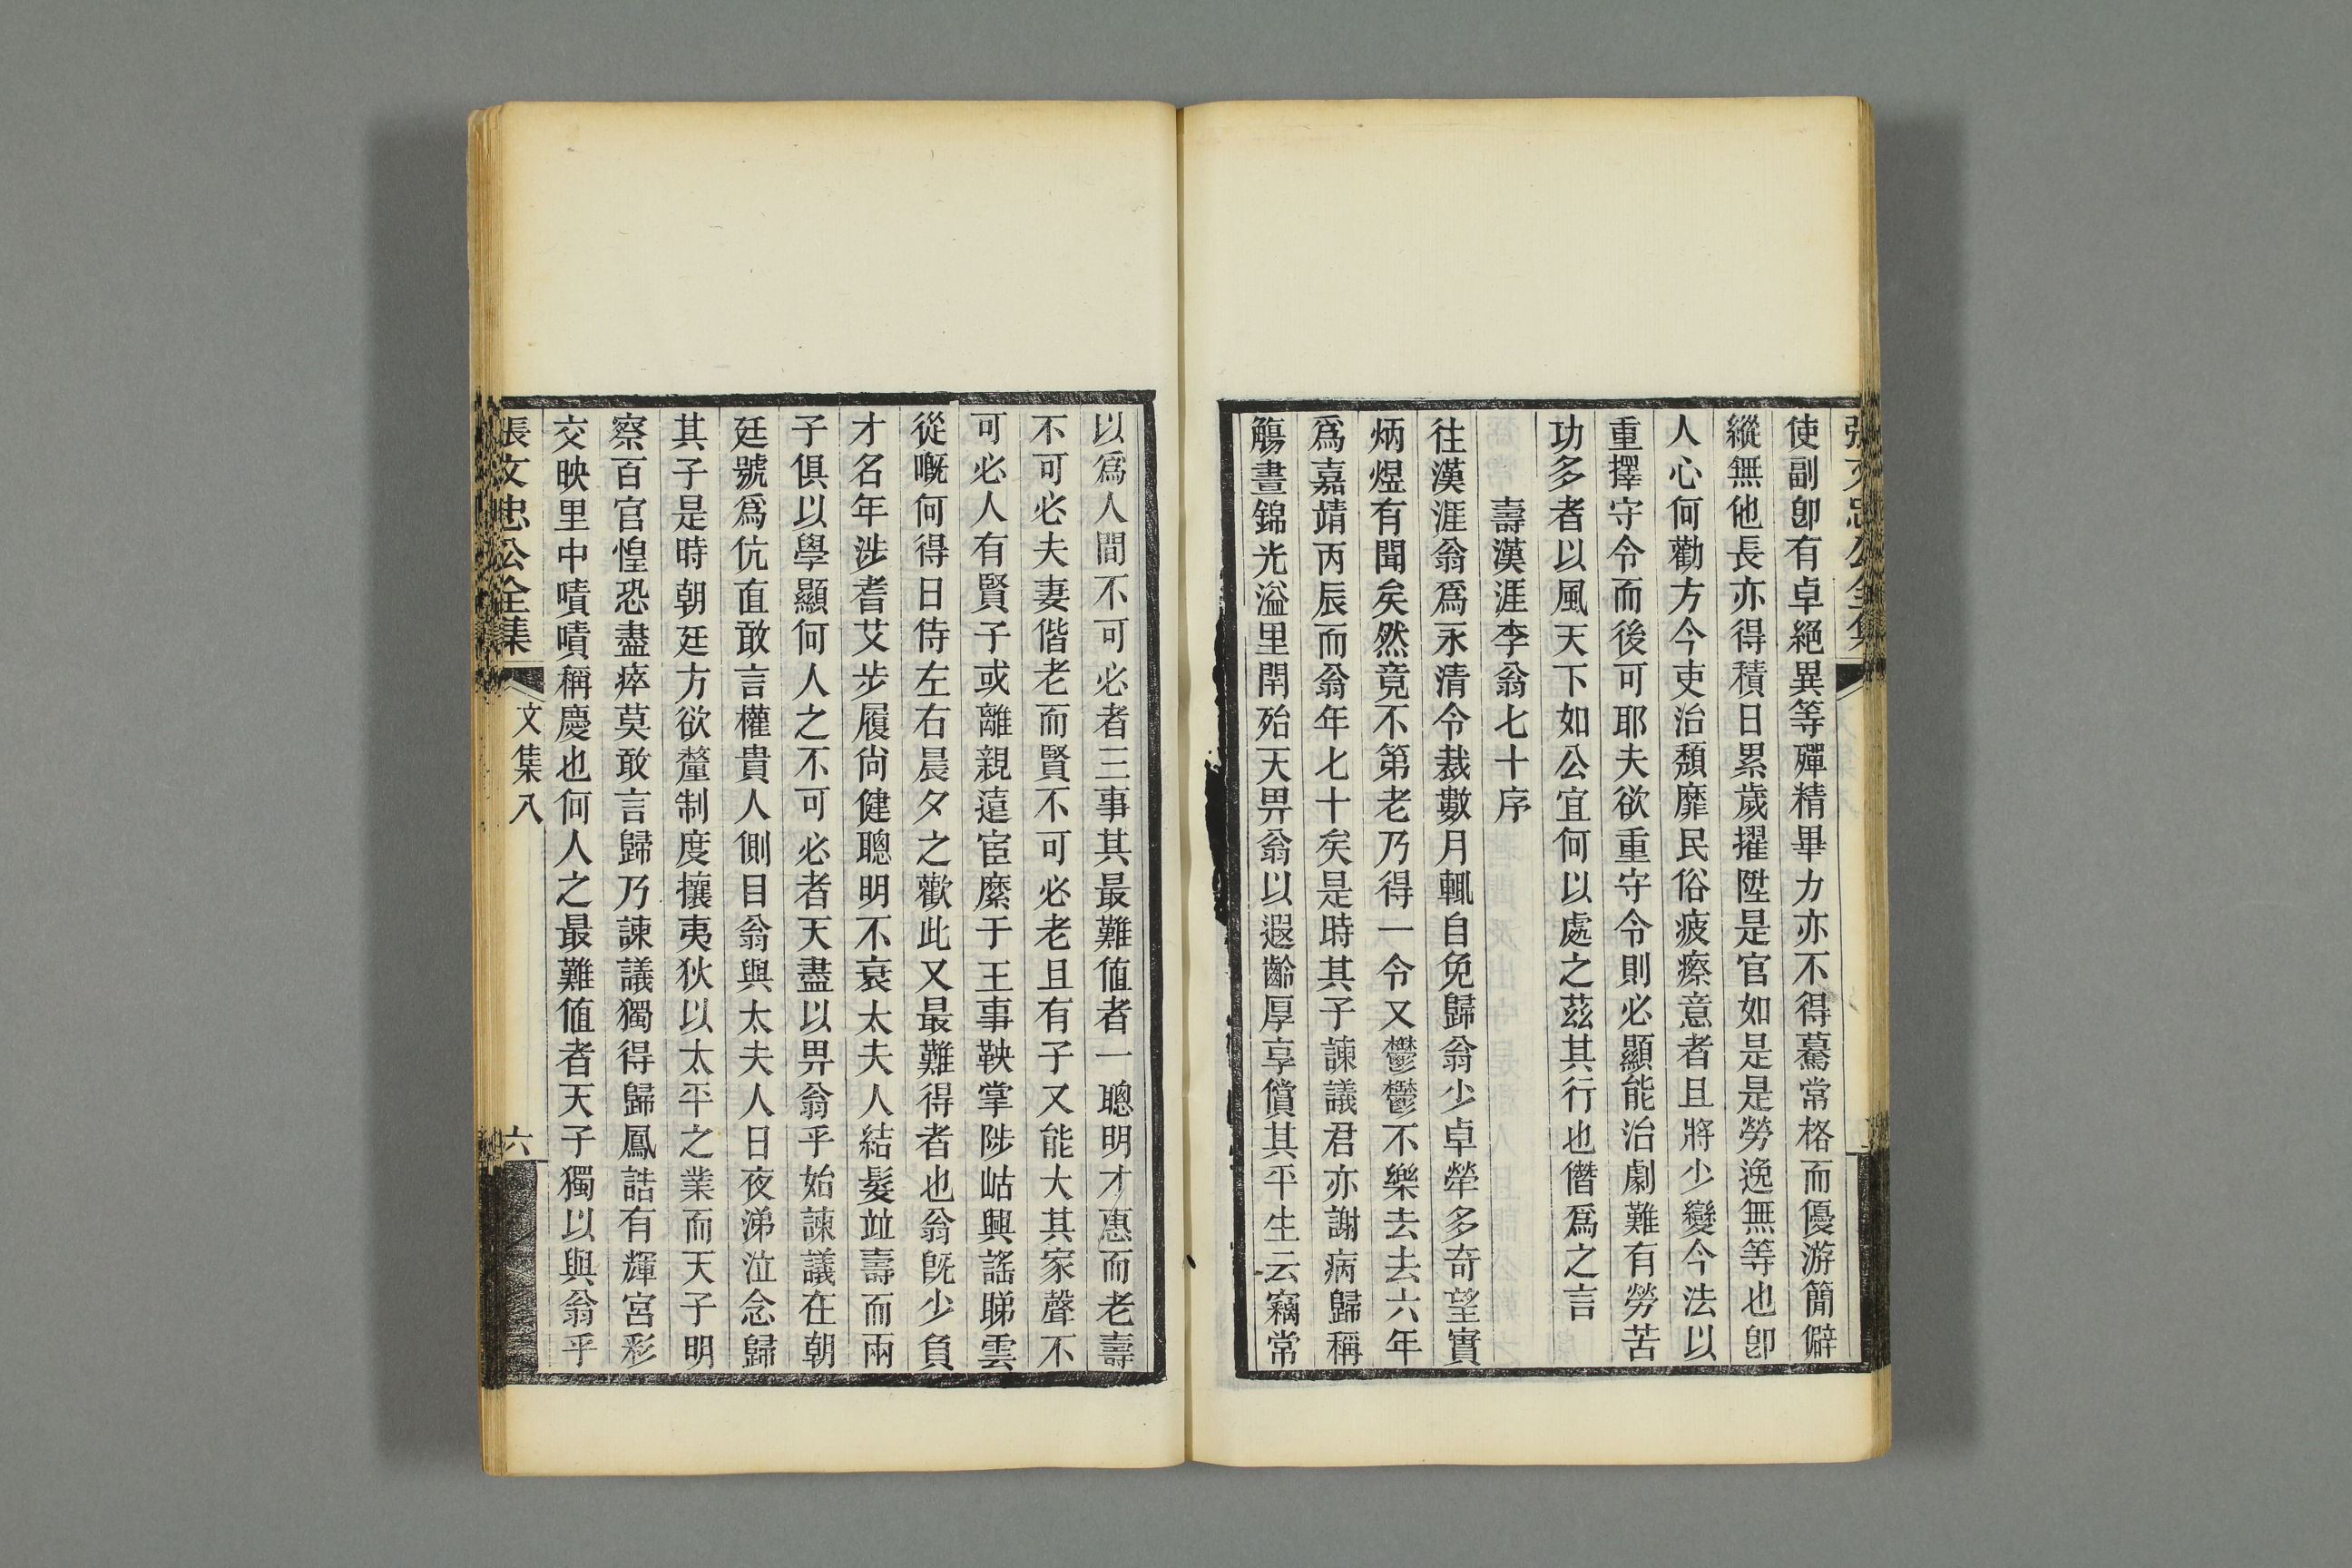 使副卽有卓絕異等殫精畢力亦不得驀常格而優游簡僻
縱無他長亦得積日累歲擢陞是官如是是勞逸無等也卽
人心何勸方今吏治頹靡民俗疲瘵意者且將少變今法以
重擇守令而後可耶夫欲重守令則必顯能治劇難有勞苦
功多者以風天下如公宜何以處之茲其行也僭爲之言
壽漢涯李翁七十序
往漢涯翁爲永清令裁數月輒自免歸翁少卓犖多奇望實
炳煜有聞矣然竟不第老乃得一令又鬱鬱不樂去去六年
爲嘉靖丙辰而翁年七十矣是時其子諫議君亦謝病歸稱
觴晝錦光溢里閈殆天畀翁以遐齡厚享償其平生云竊常
以爲人間不可必者三事其最難値者一聰明才惠而老壽
不可必夫妻偕老而賢不可必老且有子又能大其家聲不
可必人有賢子或離親遠宦縻于王事鞅掌陟岵興謠睇雲
從嘅何得日侍左右晨夕之歡此又最難得者也翁旣少負
才名年涉耆艾步履尙健聰明不衰太夫人結髮竝壽而兩
子俱以學顯何人之不可必者天盡以畀翁乎始諫議在朝
廷號爲伉直敢言權貴人側目翁與太夫人日夜涕泣念歸
其子是時朝廷方欲釐制度攘夷狄以太平之業而天子明
察百官惶恐盡瘁莫敢言歸乃諫議獨得歸鳳誥有輝宮彩
交映里中嘖嘖稱慶也何人之最難値者天子獨以與翁乎
張文忠公全集
文集八
六